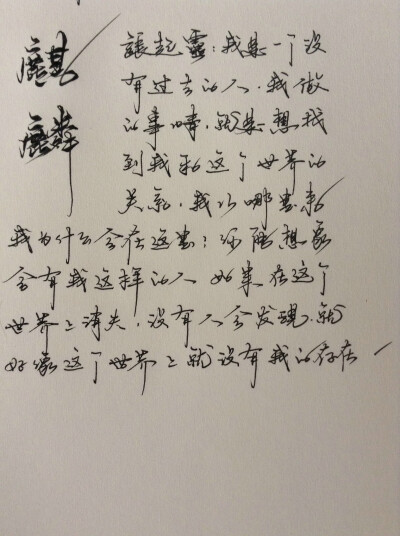 麒
麟
張起靈:我是一个没
有过去的人,我做
的事情,就是想找
到我和这个世界的
关系,我从哪里来
我为什么会在这里?你能想象
会有我这样的人 如果在这个
世界上消失,没有人会发现,就
好像这个世界上就没有我的存在